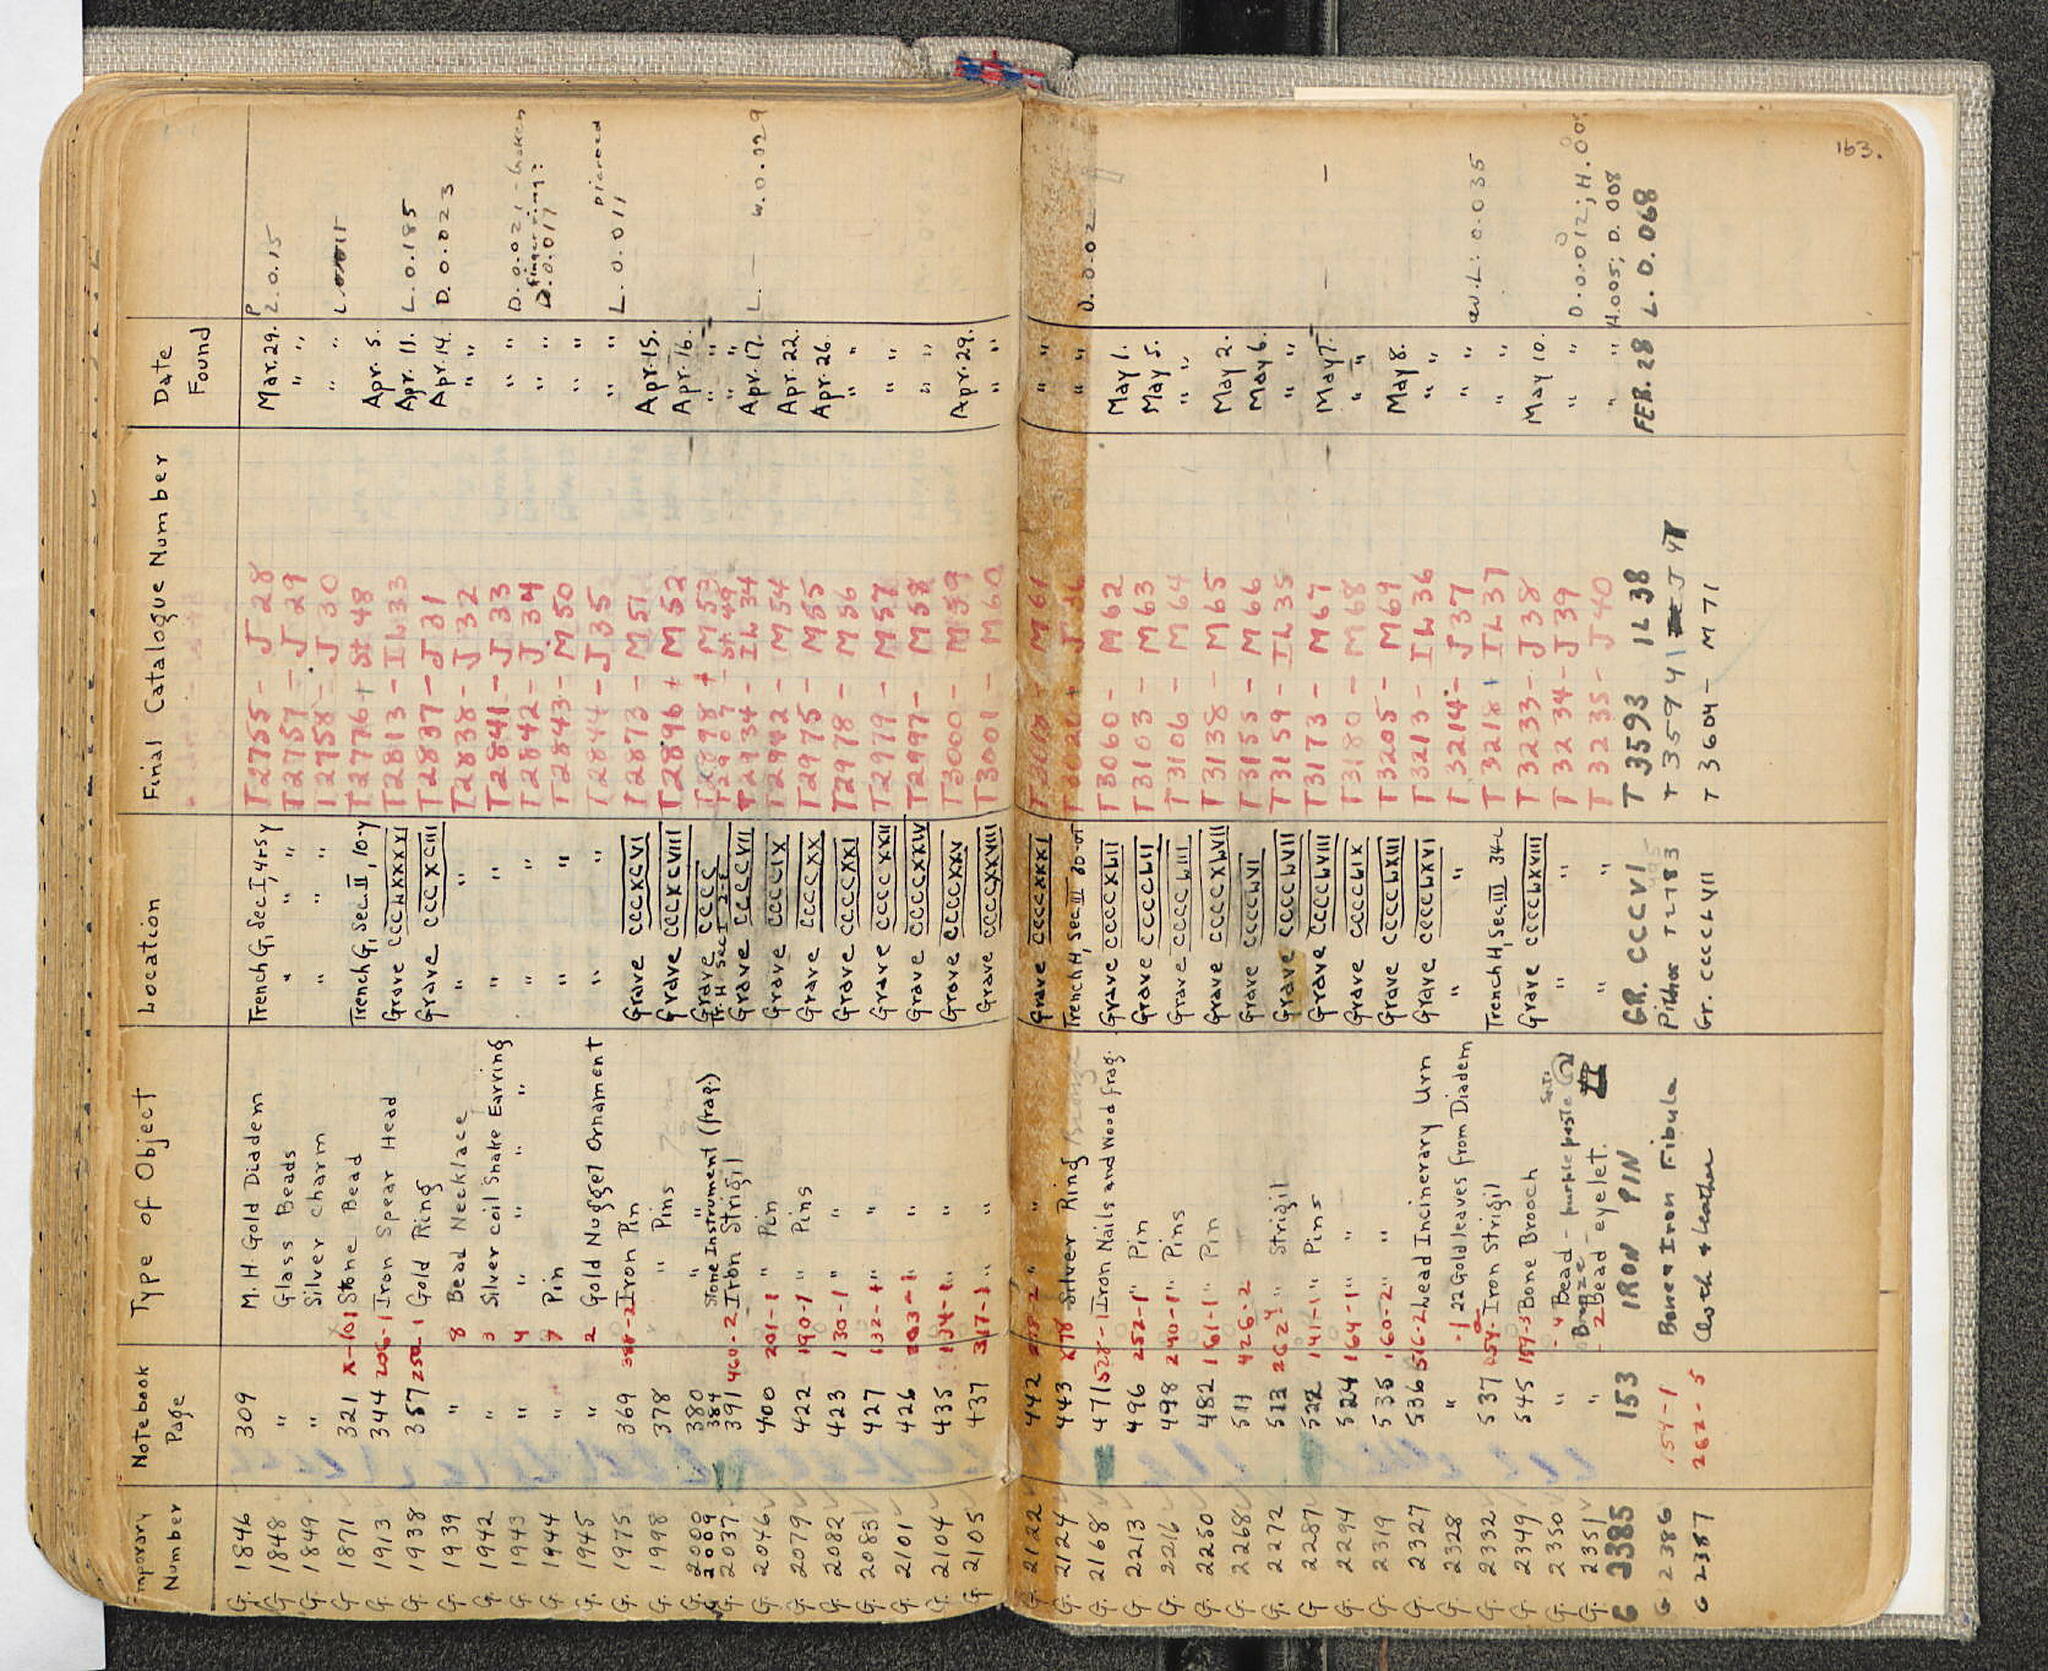 Temporary Number | Notebook Page | Type of Object | Location | Final Catalogue Number | Date Found
G. 1846 309 M.H. Gold Diadem Trench G, Sec I, 4rs y T2755 - J 28 Mar. 29. L. 0.15
G 1848 " Glass Beads " " " T2757 - J 29 " "
G. 1849 " Silver charm " " " T2758 - J 30 " "
G 1871 321 X-101 Stone Bead Trench G, Sec II, 10-y T2776 + St 48 Apr. 5.
G. 1913 344 206-1 Iron Spear Head Grave CCCLXXXVI T2813 - IL 33 Apr. 11. L. 0.185
G. 1938 357 252-1 Gold Ring Grave CCCXCIII T2837 - J 31 Apr. 14. D. 0.023
G. 1939 " 8 Bead Necklace " T2838 - J 32 " "
G. 1942 " 3 Silver coil Snake Earring " " T2841 - J 33 " " D. 0.021 - broken
G. 1943 " 4 " " " " " " T2842 - J 34 " " Finger ring? D. 0.017
G. 1944 " 7 Pin " " T2843 - M 50 " "
G. 1945 " 2 Gold Nugget Ornament " " T2844 - J 35 " " L. 0.011 pierced
G. 1975 369 Iron Pin Grave CCCXCVI T2873 - M 51 Apr. 15.
G. 1998 378 " Pins Grave CCCXCVIII T2896 + M 52 Apr. 16.
G. 2000 380 " " Grave CCCC T2898 + M 53 " "
G. 2009 384 Stone Instrument (frag.) Tr. H. Sec I T2907 - St 49 " "
G. 2037 391 460-2 Iron Strigil Grave CCCCVII T2934 - IL 34 Apr. 17. L. — W. 0.029
G. 2046 400 201-1 " Pin Grave CCCCIX T2942 - M 54 Apr. 22.
G. 2079 422 190-1 " Pins Grave CCCCXX T2975 - M 55 Apr. 26.
G. 2082 423 130-1 " " Grave CCCCXXI T2978 - M 56 " "
G. 2083 427 132-1 " " Grave CCCCXXII T2979 - M 57 " "
G. 2101 426 " " Grave CCCCXXIV T2997 - M 58 " "
G. 2104 435 134-1 " " Grave CCCCXXV T3000 - M 59 Apr. 29.
G 2105 437 " " Grave CCCCXXVIII T3001 - M 60 " "
163.
G 2122 442 " " Grave CCCCXXXI M 61 " "
G. 2124 443 Silver Ring Trench H, Sec III T3020 + J 36 " " D. 0.02
G. 2168 471 528-1 Iron Nails and Wood frag. Grave CCCCXLII T3060 - M 62 May 1.
G 2213 496 252-1 " Pin Grave CCCCLII T3103 - M 63 May 5.
G. 2216 498 240-1 " Pins Grave CCCCLIII T3106 - M 64 " "
G. 2250 482 161-1 " Pin Grave CCCCXLVII T3138 - M 65 May 2.
G. 2268 511 426-2 Grave CCCCLVI T3155 - M 66 May 6.
G. 2272 513 262-4 " Strigil Grave CCCCLVII T3159 - IL 35 " "
G 2287 522 141-1 " Pins Grave CCCCLVIII T3173 - M 67 May 7. — —
G. 2294 524 164-1 " " Grave CCCCLIX T3180 - M 68 " "
G. 2319 535 160-2 " " Grave CCCCLXIII T3205 - M 69 May 8.
G. 2327 536 516-2 Lead Incinerary Urn Grave CCCCLXVI T3213 - IL 36 " "
G. 2328 " -1 22 Gold leaves from Diadem " " T3214 - J 37 " " av. L. 0.035
G. 2332 537 Iron Strigil Trench H, Sec III 34-L T3218 + IL 37 " "
G. 2349 545 159-3 Bone Brooch Grave CCCCLXVIII T3233 - J 38 May 10.
G. 2350 " -4 Bead - purple paste " " T3234 - J 39 " " D. 0.012; H. 0.00
G. 2351 " -2 Bronze Bead - eyelet. " " T3235 - J 40 " " H. 005; D. 008
G 2385 153 IRON PIN GR. CCCVI T 3593 IL 38 FEB. 28 L. 0.068
G 2386 154-1 Bone & Iron Fibula Pithos T 3594 J 41
G 2387 262-5 Cloth & Leather Gr. CCCCLVII T 3604 - M 71